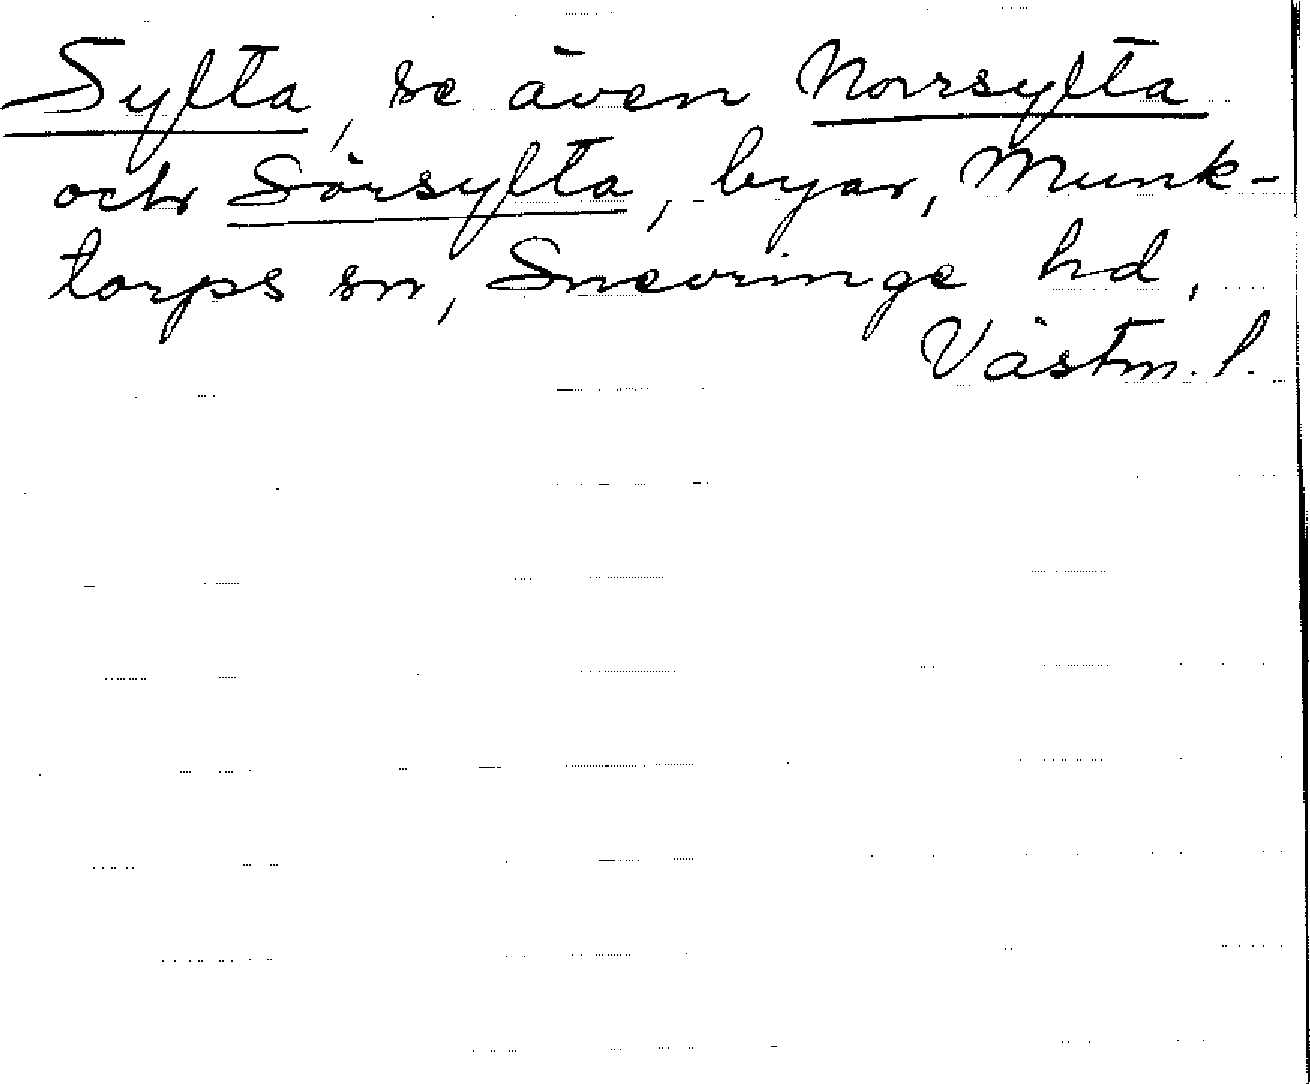 Sylta, se även Norrsylta
och Sörsylta, byar, Munk-
torps sn, Snevringe hd,
Västm. l.